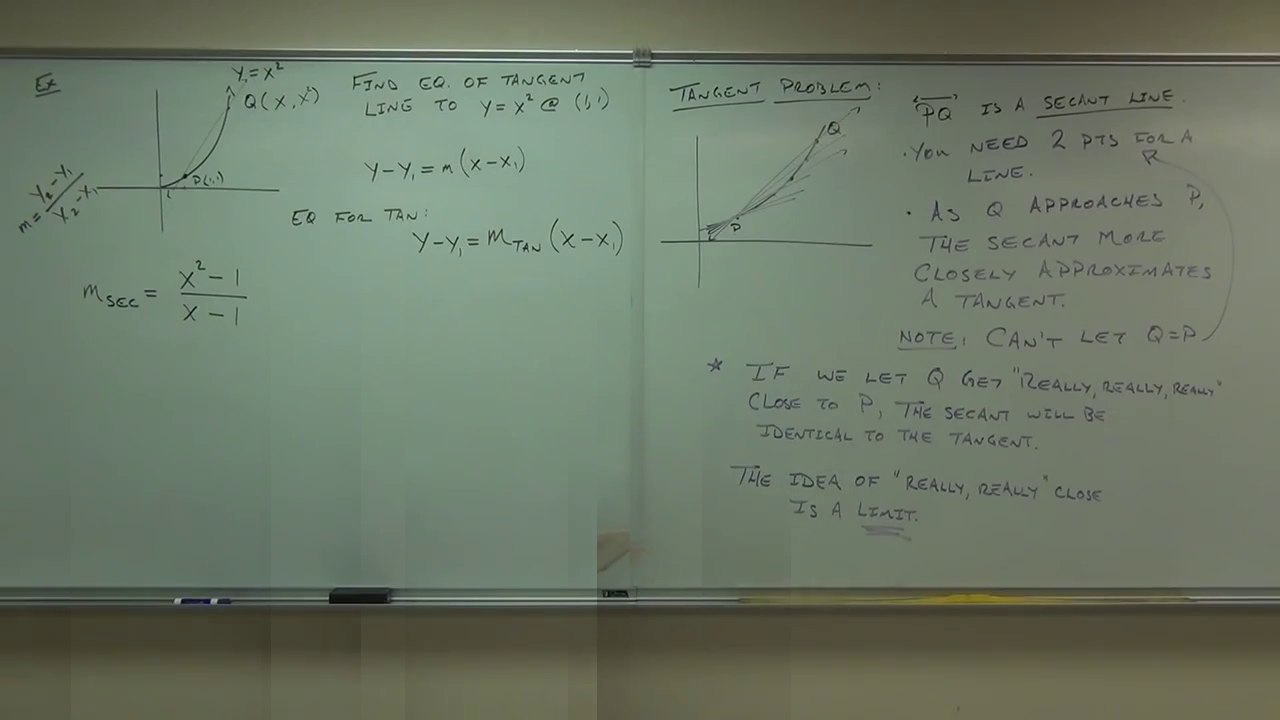 Ex
y=x²
Q(x,x²)
P(1,1)
m = y₂-y₁ / x₂-x₁
FIND EQ. OF TANGENT
LINE TO y=x² @ (1,1)
y-y₁ = m(x-x₁)
EQ FOR TAN:
y-y₁ = m_TAN (x-x₁)
m_SEC = x²-1 / x-1
TANGENT PROBLEM:
Q
P
PQ IS A SECANT LINE.
• YOU NEED 2 PTS FOR A
LINE.
• AS Q APPROACHES P,
THE SECANT MORE
CLOSELY APPROXIMATES
A TANGENT.
NOTE: CAN'T LET Q=P
* IF WE LET Q GET "REALLY, REALLY, REALLY"
CLOSE TO P, THE SECANT WILL BE
IDENTICAL TO THE TANGENT.
THE IDEA OF "REALLY, REALLY" CLOSE
IS A LIMIT.